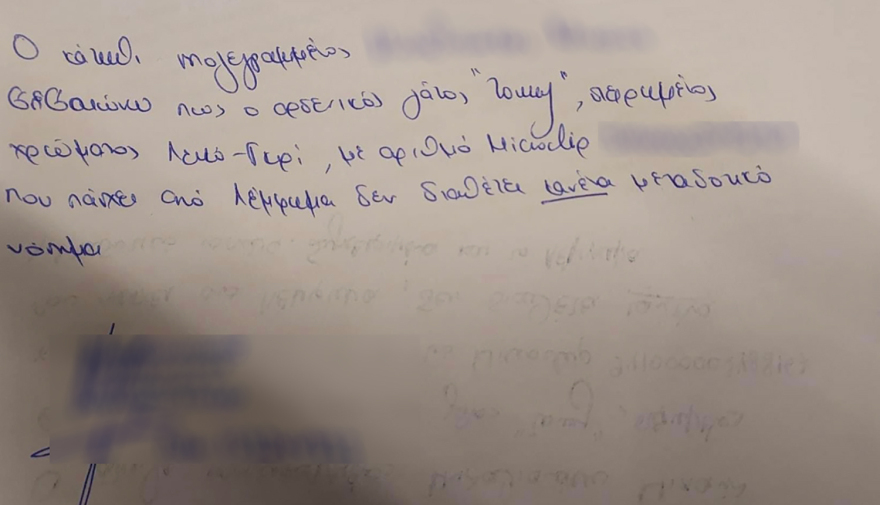 Ο κάτωθι υπογεγραμμένος
βεβαιώνω πως ο αρσενικός γάτος "Τομυ", στειρωμένος
χρώματος Λευκό-Γκρί, με αριθμό Microchip
που πάσχει από λέμφωμα δεν διαθέτει κανένα μεταδοτικό
νόσημα